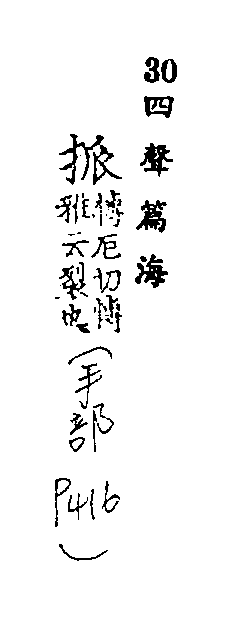 30 四聲篇海
挀
愽厄切愽
雅云裂也
(手部 P416)